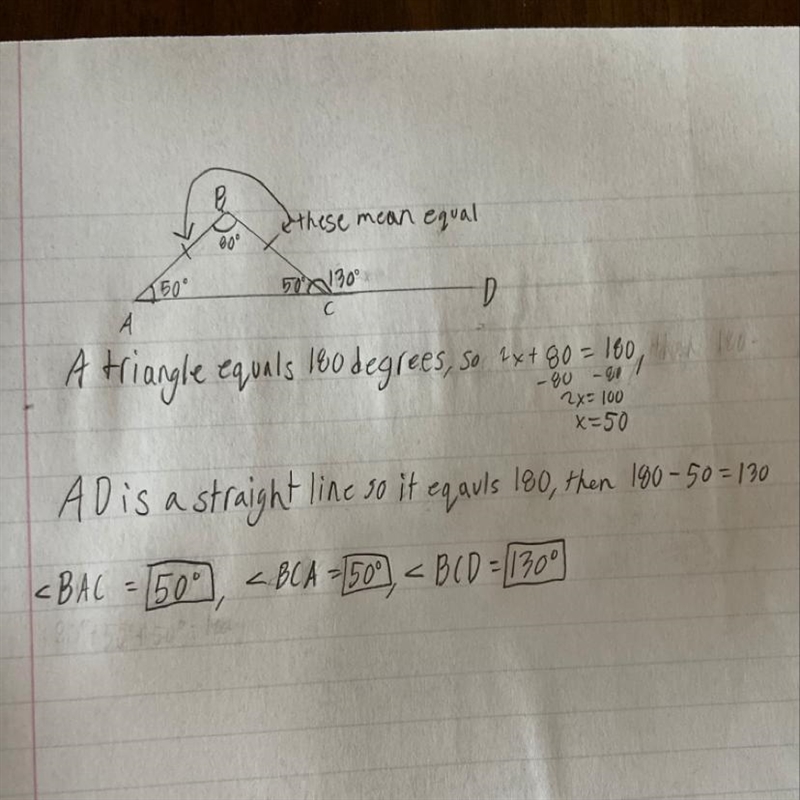 B
80°
these mean equal
50°
50°
130°
A
C
D
A triangle equals 180 degrees, so 2x + 80 = 180,
-80 -80
2x = 100
x = 50
AD is a straight line so it eqauls 180, then 180 - 50 = 130
<BAC = 50°, <BCA = 50°, < BCD = 130°